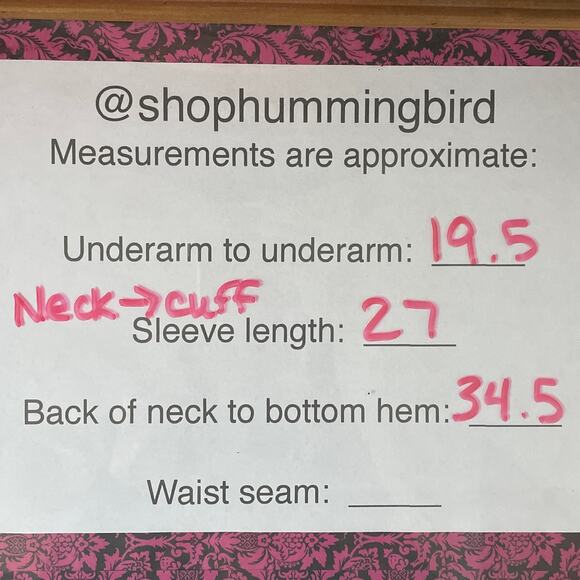 @shophummingbird
Measurements are approximate:
Underarm to underarm: 19.5
Neck→cuff
Sleeve length: 27
Back of neck to bottom hem: 34.5
Waist seam: ____